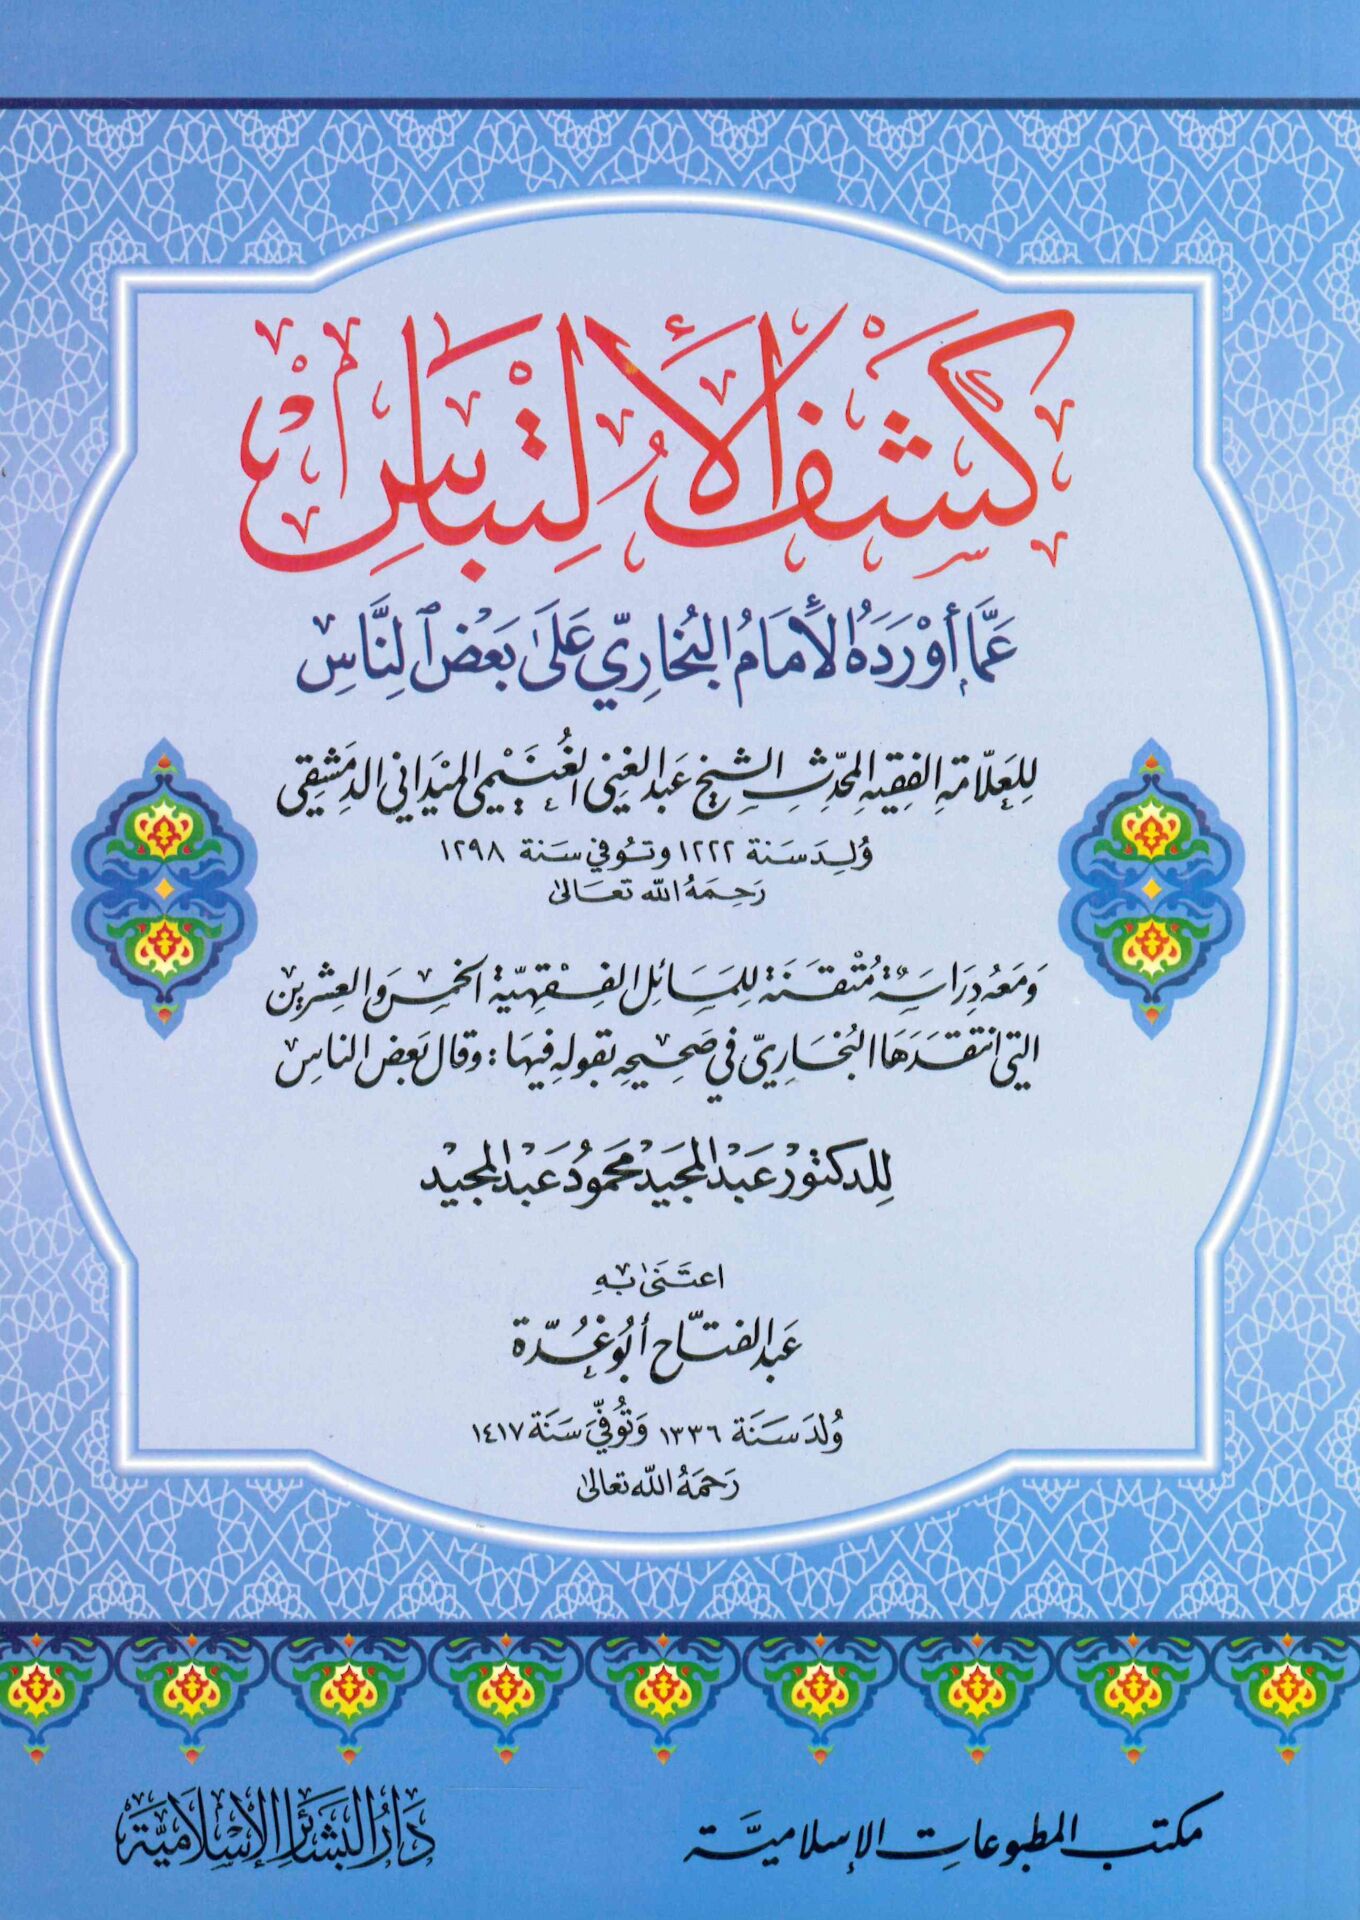 كَشْفُ الالْتِبَاسِ
عَمَّا أَوْرَدَهُ الإِمَامُ البُخَارِيّ عَلَىٰ بَعْضِ النَّاسِ
لِلعَلّامَةِ الفَقِيهِ المحَدِّثِ الشَّيخِ عَبدِ الغَنِي الغُنَيْمِي المَيْدَانِي الدِّمَشْقِي
وُلِدَ سَنَة ١٢٢٢ وَتوُفي سَنَة ١٢٩٨
رَحِمَهُ اللّٰه تعَالىٰ
وَمَعَهُ دِرَاسَةٌ مُتْقَنَة لِلمَسَائِل الفِقْهِيَّة الخمسِ وَالعِشرِين
التي انتَقَدَهَا البُخَارِيّ في صَحِيحِهِ بقولِهِ فيهَا : وقال بَعضُ الناسِ
لِلدكتور عَبْد المجَيد محمُود عَبْد المجيد
اعتَنىٰ بِهِ
عَبد الفتَّاح أبُو غُدّة
وُلدَ سَنَة ١٣٣٦ وَتُوفِّيَ سَنَة ١٤١٧
رَحمَهُ اللّه تعالىٰ
مكتب المطبوعات الإسلاميَّة
دَارُ البَشَائِر الإِسْلَاميَّة